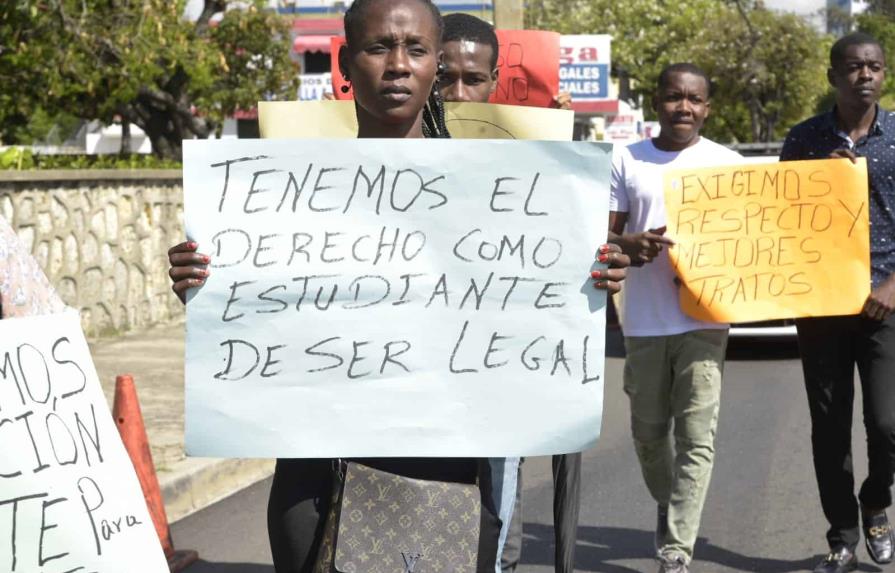 TENEMOS EL
DERECHO COMO
ESTUDIANTE
DE SER LEGAL
EXIGIMOS
RESPECTO Y
MEJORES
TRATOS
MOS
CIÓN
TE Para